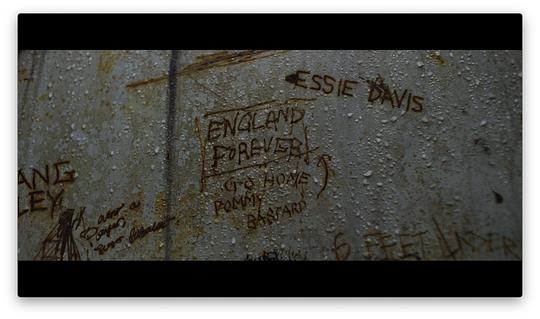 ESSIE DAVIS
ENGLAND
FOREVER
GO HOME
POMMY
BASTARD
ANG
LEY
6 FEET UNDER